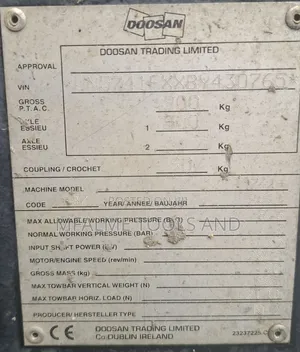 DOOSAN
DOOSAN TRADING LIMITED
APPROVAL
VIN
GROSS
P.T.A.C. Kg
AXLE
ESSIEU 1 Kg
AXLE
ESSIEU 2 Kg
COUPLING / CROCHET Kg
MACHINE MODEL
CODE YEAR/ ANNEE/ BAUJAHR
MAX ALLOWABLE WORKING PRESSURE (BAR)
NORMAL WORKING PRESSURE (BAR)
MFALME TOOLS AND
INPUT SHAFT POWER (kW)
MOTOR/ENGINE SPEED (rev/min)
GROSS MASS (kg)
MAX TOWBAR VERTICAL WEIGHT (N)
MAX TOWBAR HORIZ. LOAD (N)
PRODUCER/ HERSTELLER TYPE
CE DOOSAN TRADING LIMITED
Co.DUBLIN IRELAND